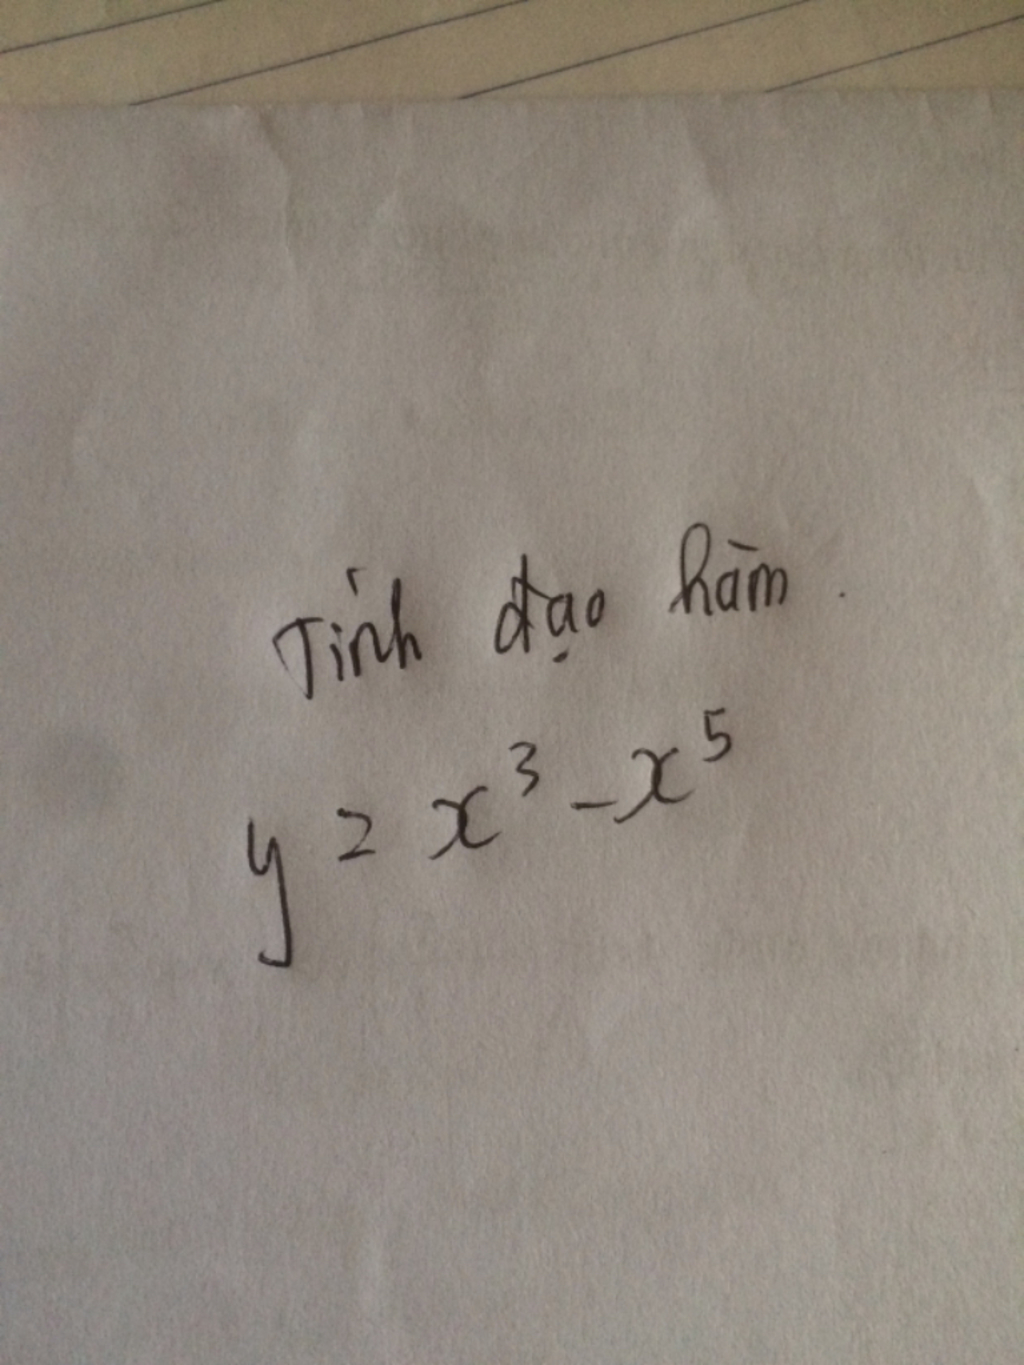 Tính đạo hàm.
y = x³ - x⁵